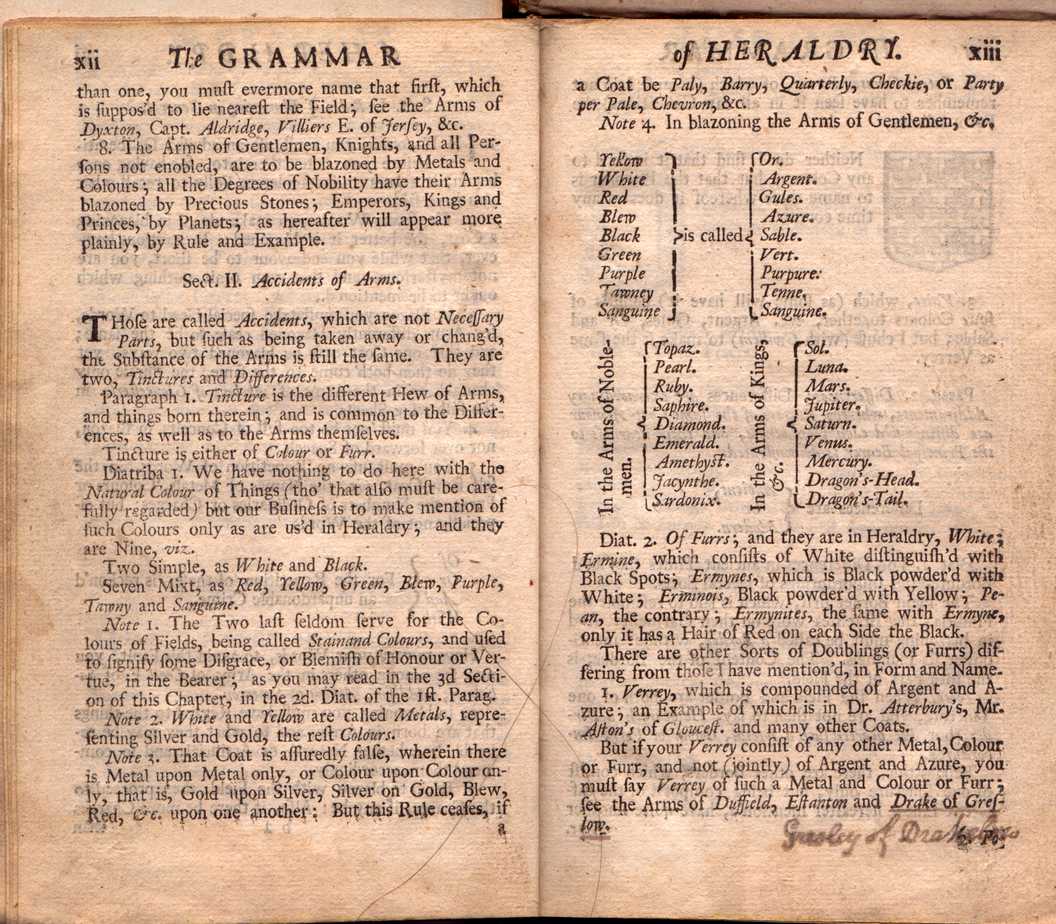 xii The GRAMMAR
than one, you muſt evermore name that firſt, which
is ſuppos'd to lie neareſt the Field; ſee the Arms of
Dyxton, Capt. Aldridge, Villiers E. of Jerſey, &c.
8. The Arms of Gentlemen, Knights, and all Per-
ſons not enobled, are to be blazoned by Metals and
Colours; all the Degrees of Nobility have their Arms
blazoned by Precious Stones; Emperors, Kings and
Princes, by Planets; as hereafter will appear more
plainly, by Rule and Example.
Sect. II. Accidents of Arms.
THoſe are called Accidents, which are not Neceſſary
Parts, but ſuch as being taken away or chang'd,
the Subſtance of the Arms is ſtill the ſame. They are
two, Tinctures and Differences.
Paragraph 1. Tincture is the different Hew of Arms,
and things born therein; and is common to the Differ-
ences, as well as to the Arms themſelves.
Tincture is either of Colour or Furr.
Diatriba 1. We have nothing to do here with the
Natural Colour of Things (tho' that alſo muſt be care-
fully regarded) but our Buſineſs is to make mention of
ſuch Colours only as are us'd in Heraldry; and they
are Nine, viz.
Two Simple, as White and Black.
Seven Mixt, as Red, Yellow, Green, Blew, Purple,
Tawny and Sanguine.
Note 1. The Two laſt ſeldom ſerve for the Co-
lours of Fields, being called Stainand Colours, and uſed
to ſignify ſome Diſgrace, or Blemiſh of Honour or Ver-
tue, in the Bearer; as you may read in the 3d Secti-
on of this Chapter, in the 2d. Diat. of the 1ſt. Parag.
Note 2. White and Yellow are called Metals, repre-
ſenting Silver and Gold, the reſt Colours.
Note 3. That Coat is aſſuredly falſe, wherein there
is Metal upon Metal only, or Colour upon Colour on-
ly, that is, Gold upon Silver, Silver on Gold, Blew,
Red, &c. upon one another: But this Rule ceaſes, if
a
of HERALDRY. xiii
a Coat be Paly, Barry, Quarterly, Checkie, or Party
per Pale, Chevron, &c.
Note 4. In blazoning the Arms of Gentlemen, &c.
Yellow
White
Red
Blew
Black
Green
Purple
Tawney
Sanguine
is called
Or.
Argent.
Gules.
Azure.
Sable.
Vert.
Purpure:
Tenne.
Sanguine.
In the Arms of Noble-
men.
Topaz.
Pearl.
Ruby.
Saphire.
Diamond.
Emerald.
Amethyſt.
Jacynthe.
Sardonix.
In the Arms of Kings,
&c.
Sol.
Luna.
Mars.
Jupiter.
Saturn.
Venus.
Mercury.
Dragon's-Head.
Dragon's-Tail.
Diat. 2. Of Furrs; and they are in Heraldry, White;
Ermine, which conſiſts of White diſtinguiſh'd with
Black Spots; Ermynes, which is Black powder'd with
White; Erminois, Black powder'd with Yellow; Pe-
an, the contrary; Ermynites, the ſame with Ermyne,
only it has a Hair of Red on each Side the Black.
There are other Sorts of Doublings (or Furrs) dif-
fering from thoſe I have mention'd, in Form and Name.
1. Verrey, which is compounded of Argent and A-
zure; an Example of which is in Dr. Atterbury's, Mr.
Aſton's of Glouceſt. and many other Coats.
But if your Verrey conſiſt of any other Metal, Colour
or Furr, and not (jointly) of Argent and Azure, you
muſt ſay Verrey of ſuch a Metal and Colour or Furr;
ſee the Arms of Duffield, Eſtanton and Drake of Greſ-
low.
Gresley of Drakelow
2. Po